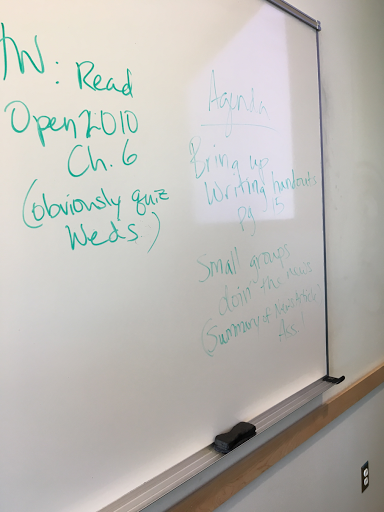 HW: Read
Open2010
Ch. 6
(obviously quiz
Weds.)
Agenda
Bring up
Writing handouts
pg 15
Small groups
doin the news
(Summary of News Article
Ass!